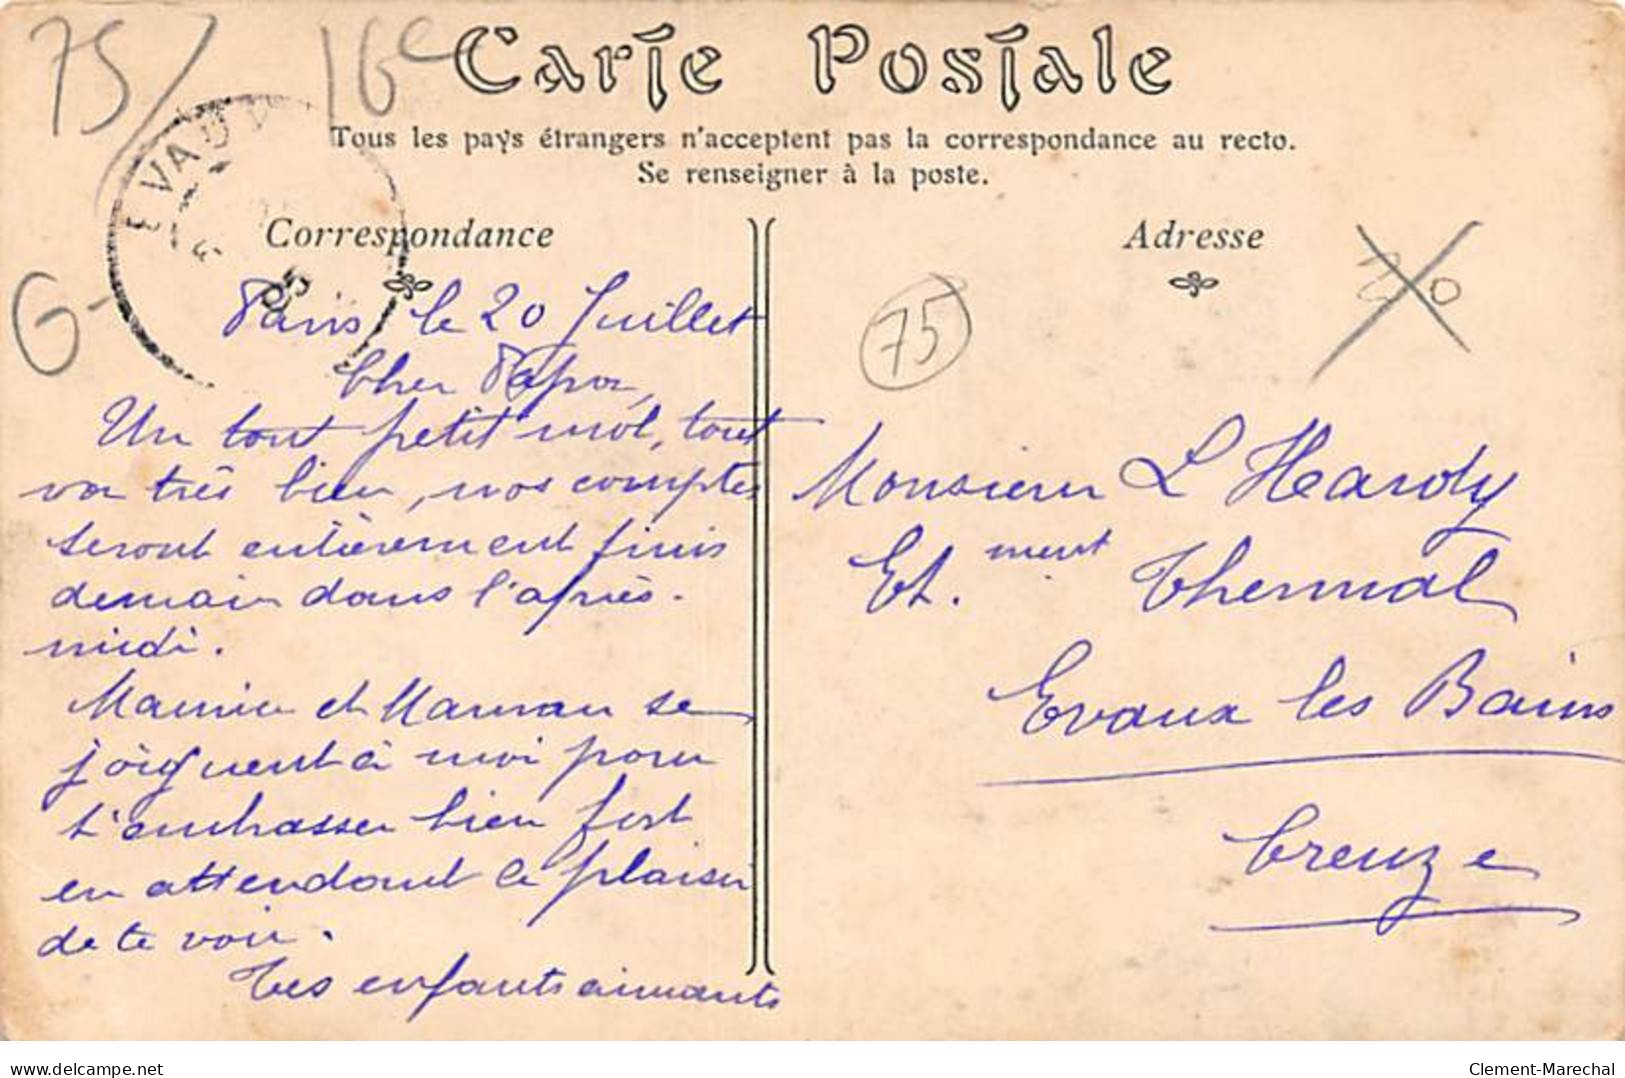 75/ 16e
Carte Postale
Tous les pays étrangers n'acceptent pas la correspondance au recto.
Se renseigner à la poste.
EVAUX
05
G-
Correspondance
Paris le 20 Juillet
Cher Papa,
Un tout petit mot, tout
va très bien, nos comptes
seront entièrement finis
demain dans l'après-
midi.
Maurice et Maman se
joignent à moi pour
t'embrasser bien fort
en attendant le plaisir
de te voir.
Tes enfants aimants
Adresse
20
75
Monsieur L Hardy
Et.ment Thermal
Evaux les Bains
Creuze
delcampe.net
Clement-Marechal